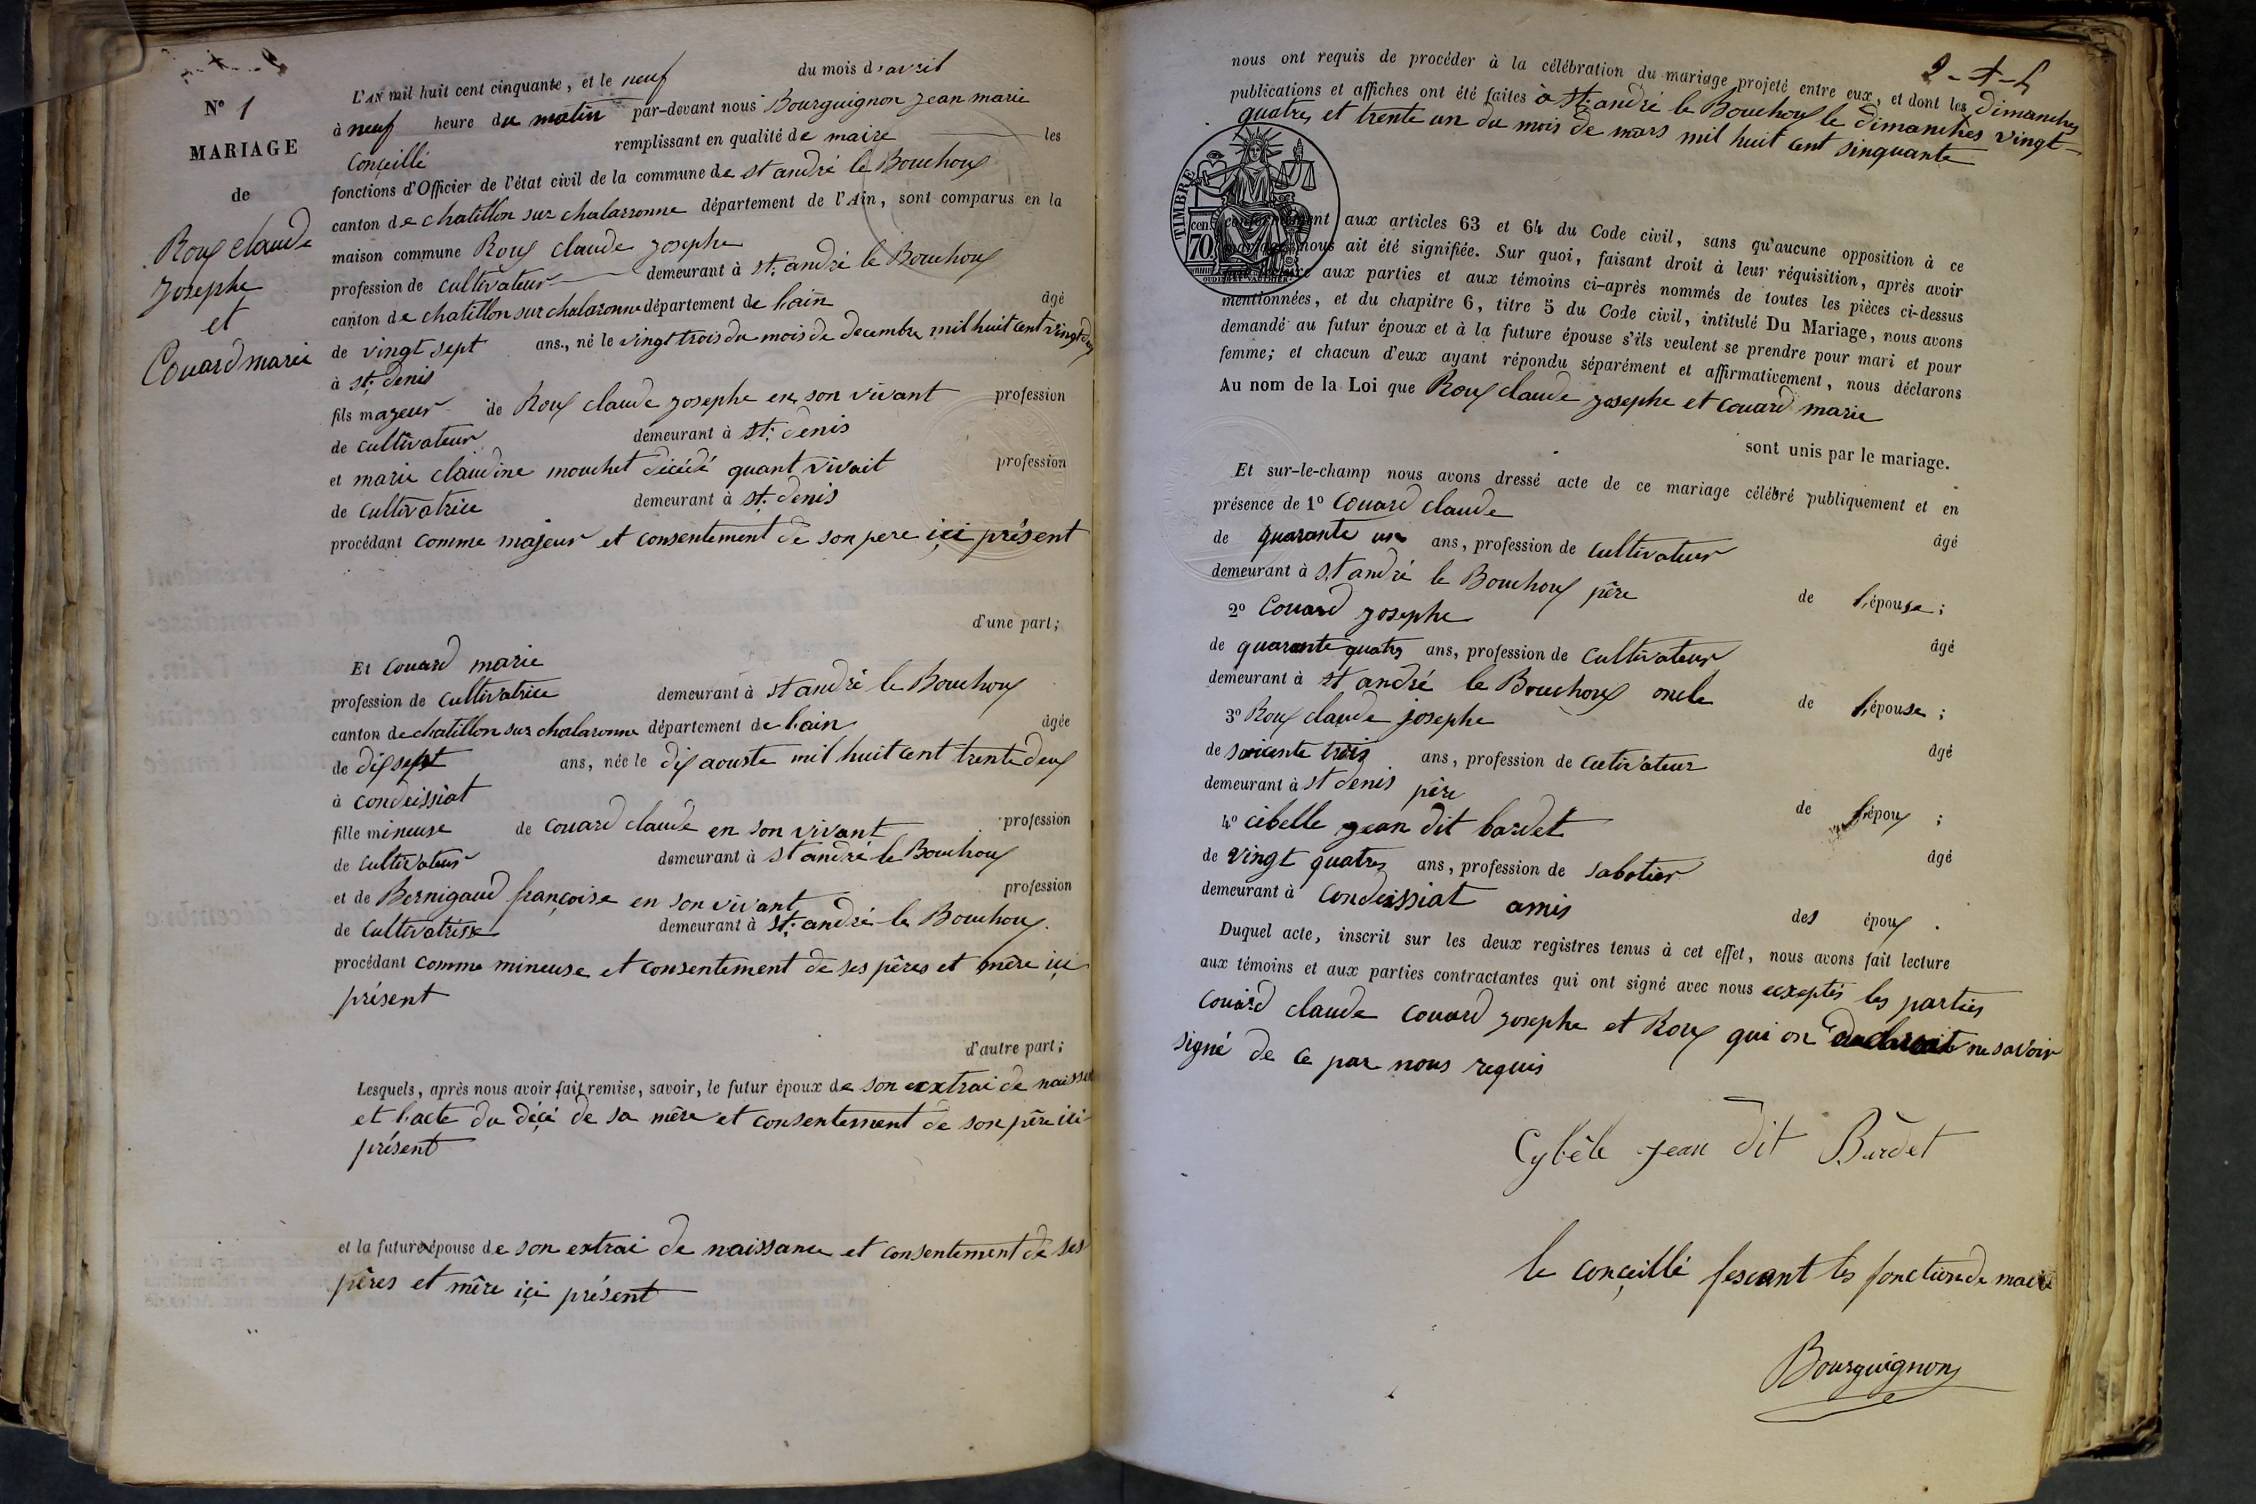 N° 1
MARIAGE
de
Roux claude
Josephe
et
Couard marie
L'AN mil huit cent cinquante, et le neuf du mois d'avril
à neuf heure du matin par-devant nous Bourguignon jean marie
Conçeillé remplissant en qualité de maire les
fonctions d'Officier de l'état civil de la commune de st andré le Bouchoux
canton de chatillon sur chalaronne département de l'Ain, sont comparus en la
maison commune Roux claude Josephe
profession de cultivateur demeurant à st. andré le Bouchoux
canton de chatillon sur chalaronne département de l'ain âgé
de vingt sept ans., né le vingt trois du mois de decembre mil huit cent vingt deux
à st. denis
fils majeur de Roux claude Josephe en son vivant profession
de cultivateur demeurant à st. denis
et marie claudine mouchet décédé quant vivait profession
de cultivatrice demeurant à st. denis
procédant comme majeur et consentement de son pere içi présent
d'une part;
Et couard marie
profession de cultivatrice demeurant à st andré le Bouchoux
canton de chatillon sur chalaronne département de l'ain âgée
de dix sept ans, née le dix aouste mil huit cent trente deux
à condeissiat
fille mineuse de couard claude en son vivant profession
de cultivateur demeurant à st andré le Bouchoux
et de Bernigaud françoise en son vivant profession
de cultivatrise demeurant à st. andré le Bouchoux.
procédant comme mineuse et consentement de ses pères et mère içi
présent
d'autre part;
Lesquels, après nous avoir fait remise, savoir, le futur époux de son extrai de naissan
et l'acte du déçé de sa mère et consentement de son père ici
présent
et la future épouse de son extrai de naissance et consentement de ses
pères et mère içi présent
2-4-5
nous ont requis de procéder à la célébration du mariage projeté entre eux, et dont les dimanches
publications et affiches ont été faites à st. andré le Bouchoux le dimanches vingt-
quatres et trente un du mois de mars mil huit cent sinquante
TIMBRE
70 cen
conformément aux articles 63 et 64 du Code civil, sans qu'aucune opposition à ce
mariage nous ait été signifiée. Sur quoi, faisant droit à leur réquisition, après avoir
aux parties et aux témoins ci-après nommés de toutes les pièces ci-dessus
mentionnées, et du chapitre 6, titre 5 du Code civil, intitulé Du Mariage, nous avons
demandé au futur époux et à la future épouse s'ils veulent se prendre pour mari et pour
femme; et chacun d'eux ayant répondu séparément et affirmativement, nous déclarons
Au nom de la Loi que Roux claude Josephe et couard marie
sont unis par le mariage.
Et sur-le-champ nous avons dressé acte de ce mariage célébré publiquement et en
présence de 1° Couard claude âgé
de quarante un ans, profession de cultivateur
demeurant à st andré le Bouchoux père de l'épouse;
2° Couard Josephe âgé
de quarante quatres ans, profession de cultivateur
demeurant à st andré le Bouchoux oncle de l'épouse;
3° Roux claude josephe âgé
de soixente trois ans, profession de cultivateur
demeurant à st denis père de l'époux;
4° cibelle jean dit bardet âgé
de vingt quatres ans, profession de sabotier
demeurant à condeissiat amis des époux.
Duquel acte, inscrit sur les deux registres tenus à cet effet, nous avons fait lecture
aux témoins et aux parties contractantes qui ont signé avec nous exceptés les parties
couard claude couard Josephe et Roux qui on ne savoir
signé de ce par nous requis
Cybèle jean dit Bardet
le conçeillé fesant les fonction de maire
Bourguignon